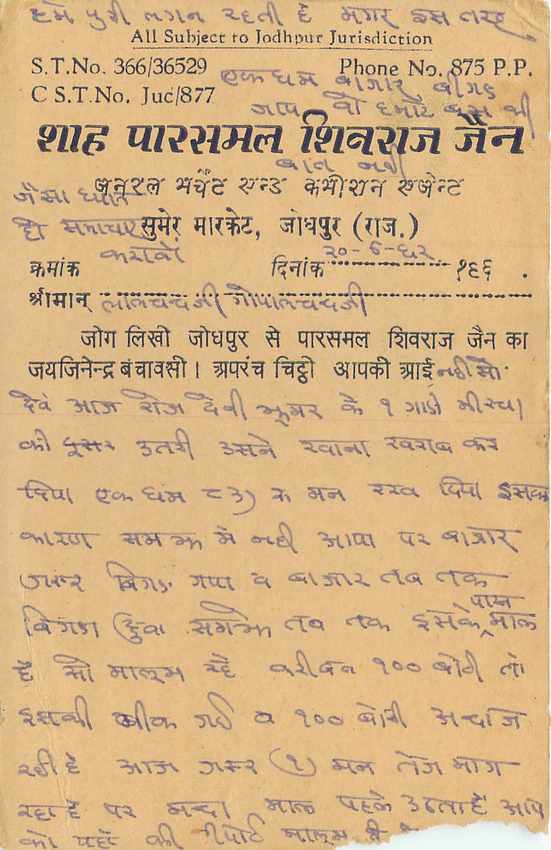 हमे पुरी लगन रहती है मगर इस तरह
All Subject to Jodhpur Jurisdiction
S.T.No. 366/36529
Phone No. 875 P.P.
C S.T.No. Juc/877
एक धम बाजार बीगड
जाय वो हमारे बस की
शाह पारसमल शिवराज जैन
बात नही
जनरल मर्चेंट एन्ड कमीशन एजेन्ट
जैसा
समाचार
करावो
सुमेर मारकेट, जोधपुर (राज.)
क्रमांक
दिनांक २०-६-६२ १९६ .
श्रीमान् लालचन्दजी गोपालचन्दजी
जोग लिखी जोधपुर से पारसमल शिवराज जैन का
जयजिनेन्द्र बंचावसी । अपरंच चिट्ठी आपकी आई नही सो
देवे आज रोज देवी के १ गाडी मीरचा
की उतरी उसने खाना खराब कर
दिया एक धम ८३) रु मन रख दिया इसका
कारण समझ मे नही आया पर बाजार
जरूर बिगड गया व बाजार तब तक
बिगडा हुवा समझो तब तक इसके पास माल
है सो मालुम रहे करीबन १०० बोरी तो
इसकी बीक गई व १०० बोरी अन्दाज
रही है आज जरूर (१) मन तेज माग
रहा है पर मन्दा माल पहले उठता है आप
को यहाँ की रीपोर्ट मालुम